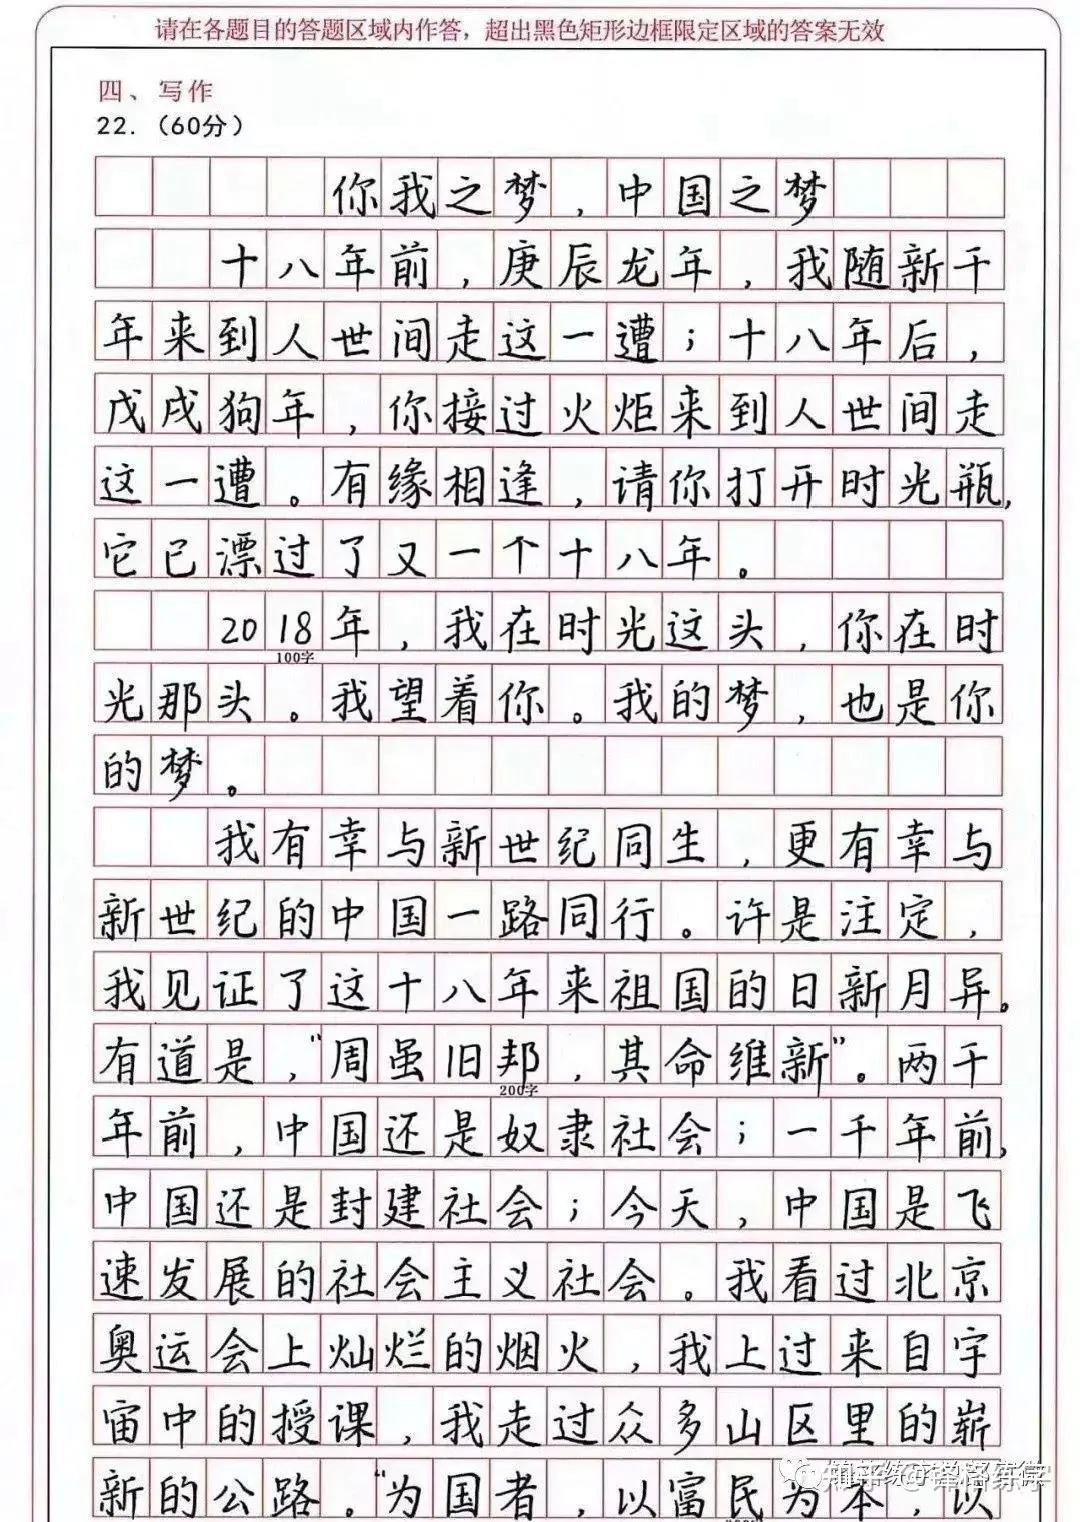 请在各题目的答题区域内作答，超出黑色矩形边框限定区域的答案无效
四、写作
22.（60分）
你我之梦，中国之梦
十八年前，庚辰龙年，我随新千
年来到人世间走这一遭；十八年后，
戊戌狗年，你接过火炬来到人世间走
这一遭。有缘相逢，请你打开时光瓶，
它已漂过了又一个十八年。
2018年，我在时光这头，你在时
100字
光那头。我望着你。我的梦，也是你
的梦。
我有幸与新世纪同生，更有幸与
新世纪的中国一路同行。许是注定，
我见证了这十八年来祖国的日新月异。
有道是，“周虽旧邦，其命维新”。两千
200字
年前，中国还是奴隶社会；一千年前，
中国还是封建社会；今天，中国是飞
速发展的社会主义社会。我看过北京
奥运会上灿烂的烟火，我上过来自宇
宙中的授课，我走过众多山区里的崭
新的公路。“为国者，以富民为本，以
知乎